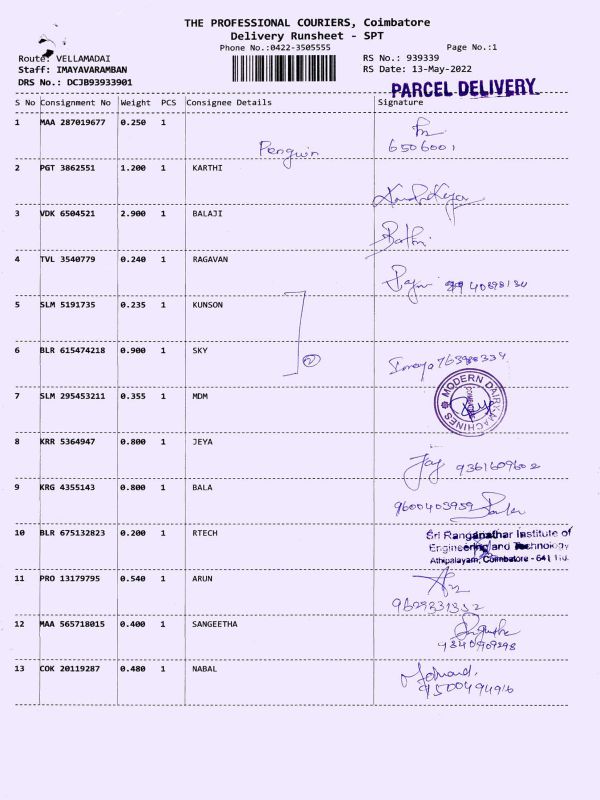 THE PROFESSIONAL COURIERS, Coimbatore
Delivery Runsheet - SPT
Phone No.:0422-3505555 Page No.:1
Route: VELLAMADAI RS No.: 939339
Staff: IMAYAVARAMBAN RS Date: 13-May-2022
DRS No.: DCJB93933901
PARCEL DELIVERY
S No Consignment No Weight PCS Consignee Details Signature
1 MAA 287019677 0.250 1
Penguin 6506001
2 PGT 3862551 1.200 1 KARTHI
3 VDK 6504521 2.900 1 BALAJI
4 TVL 3540779 0.240 1 RAGAVAN
5 SLM 5191735 0.235 1 KUNSON
6 BLR 615474218 0.900 1 SKY
2
7 SLM 295453211 0.355 1 MDM
MODERN DAIRY MACHINES
8 KRR 5364947 0.800 1 JEYA
Jay 9361609602
9 KRG 4355143 0.800 1 BALA
9600403959
10 BLR 675132823 0.200 1 RTECH
Sri Ranganathar Institute of
Engineering and Technology
Athipalayam, Coimbatore - 641
11 PRO 13179795 0.540 1 ARUN
9629331332
12 MAA 565718015 0.400 1 SANGEETHA
9840909298
13 COK 20119287 0.480 1 NABAL
9500494916